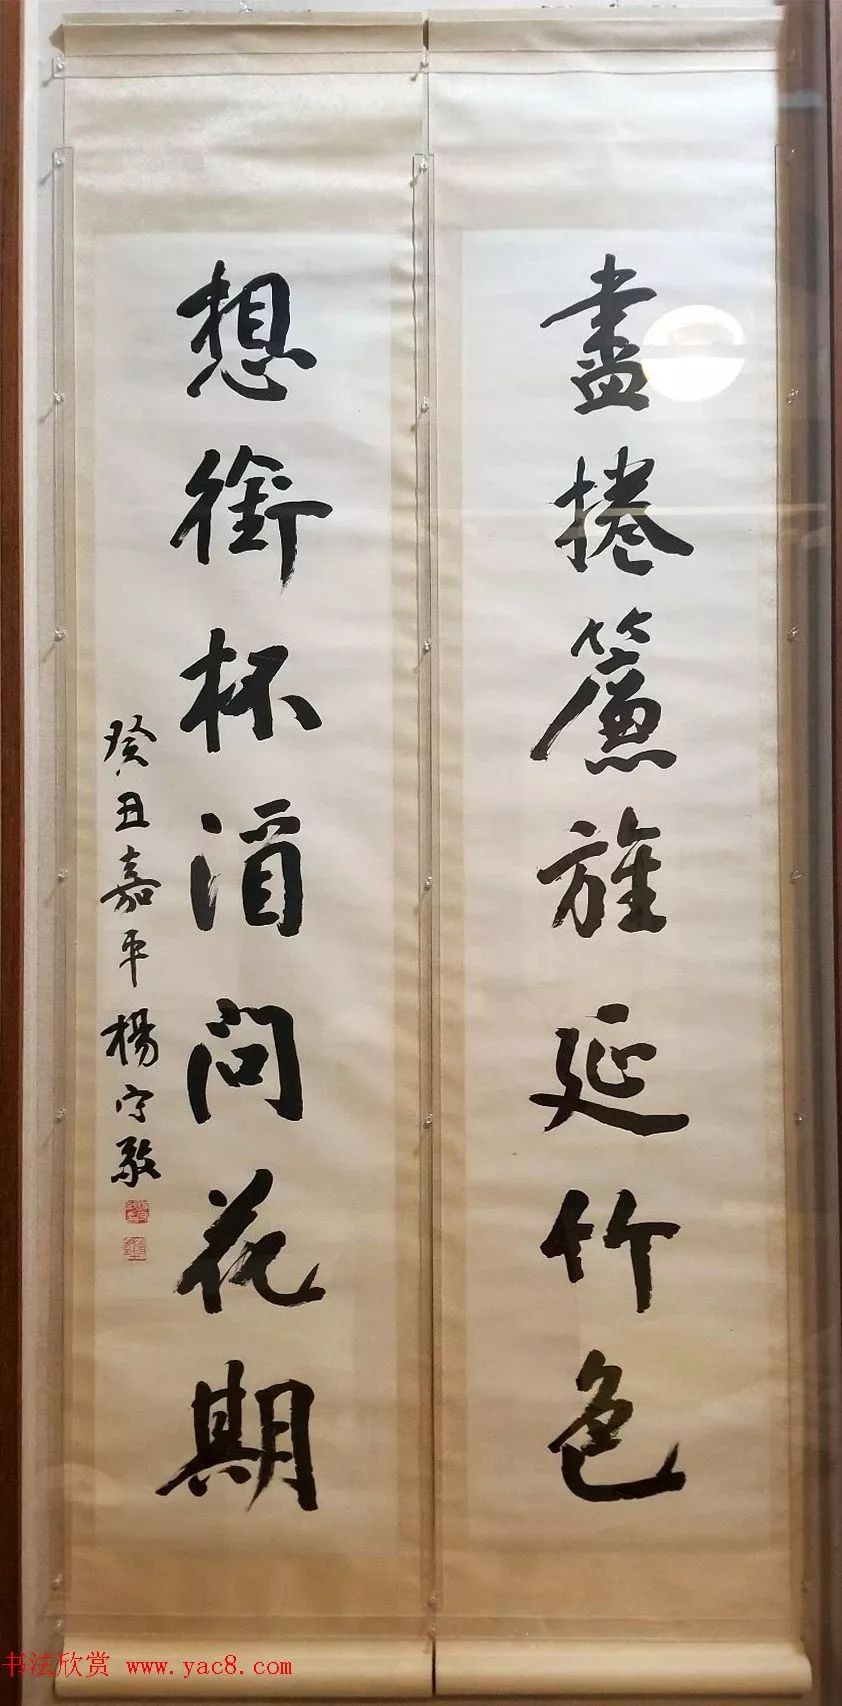 盡捲簾旌延竹色
想銜杯酒問花期
癸丑嘉平楊守敬
书法欣赏 www.yac8.com